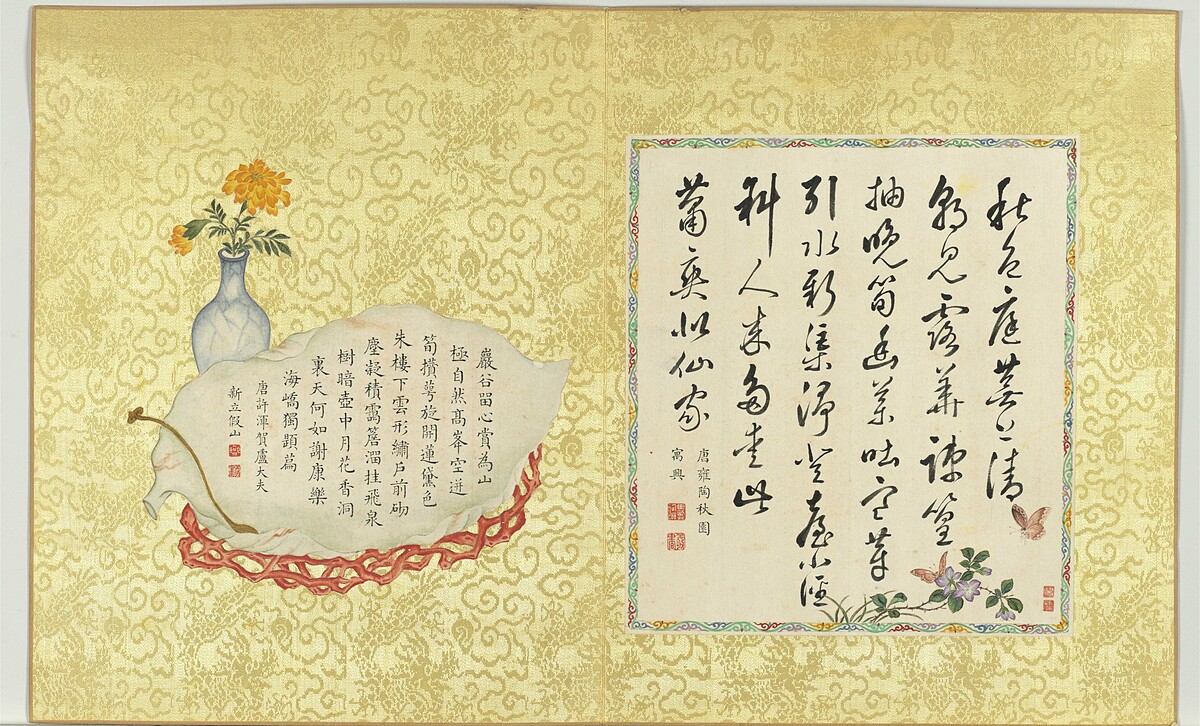 秋色庭蕪上清
朝見露華踈篁
抽晚筍幽藥吐寒芽
引水新渠淨登臺小徑
斜人來多愛此
蕭爽似仙家
唐雍陶秋園
寓興
巖谷留心賞為山
極自然高峯空迸
筍攢萼旋開蓮黛色
朱樓下雲形繡戶前砌
塵凝積靄簷溜挂飛泉
樹暗壺中月花香洞
裏天何如謝康樂
海嶠獨題篇
唐許渾賀盧大夫
新立假山